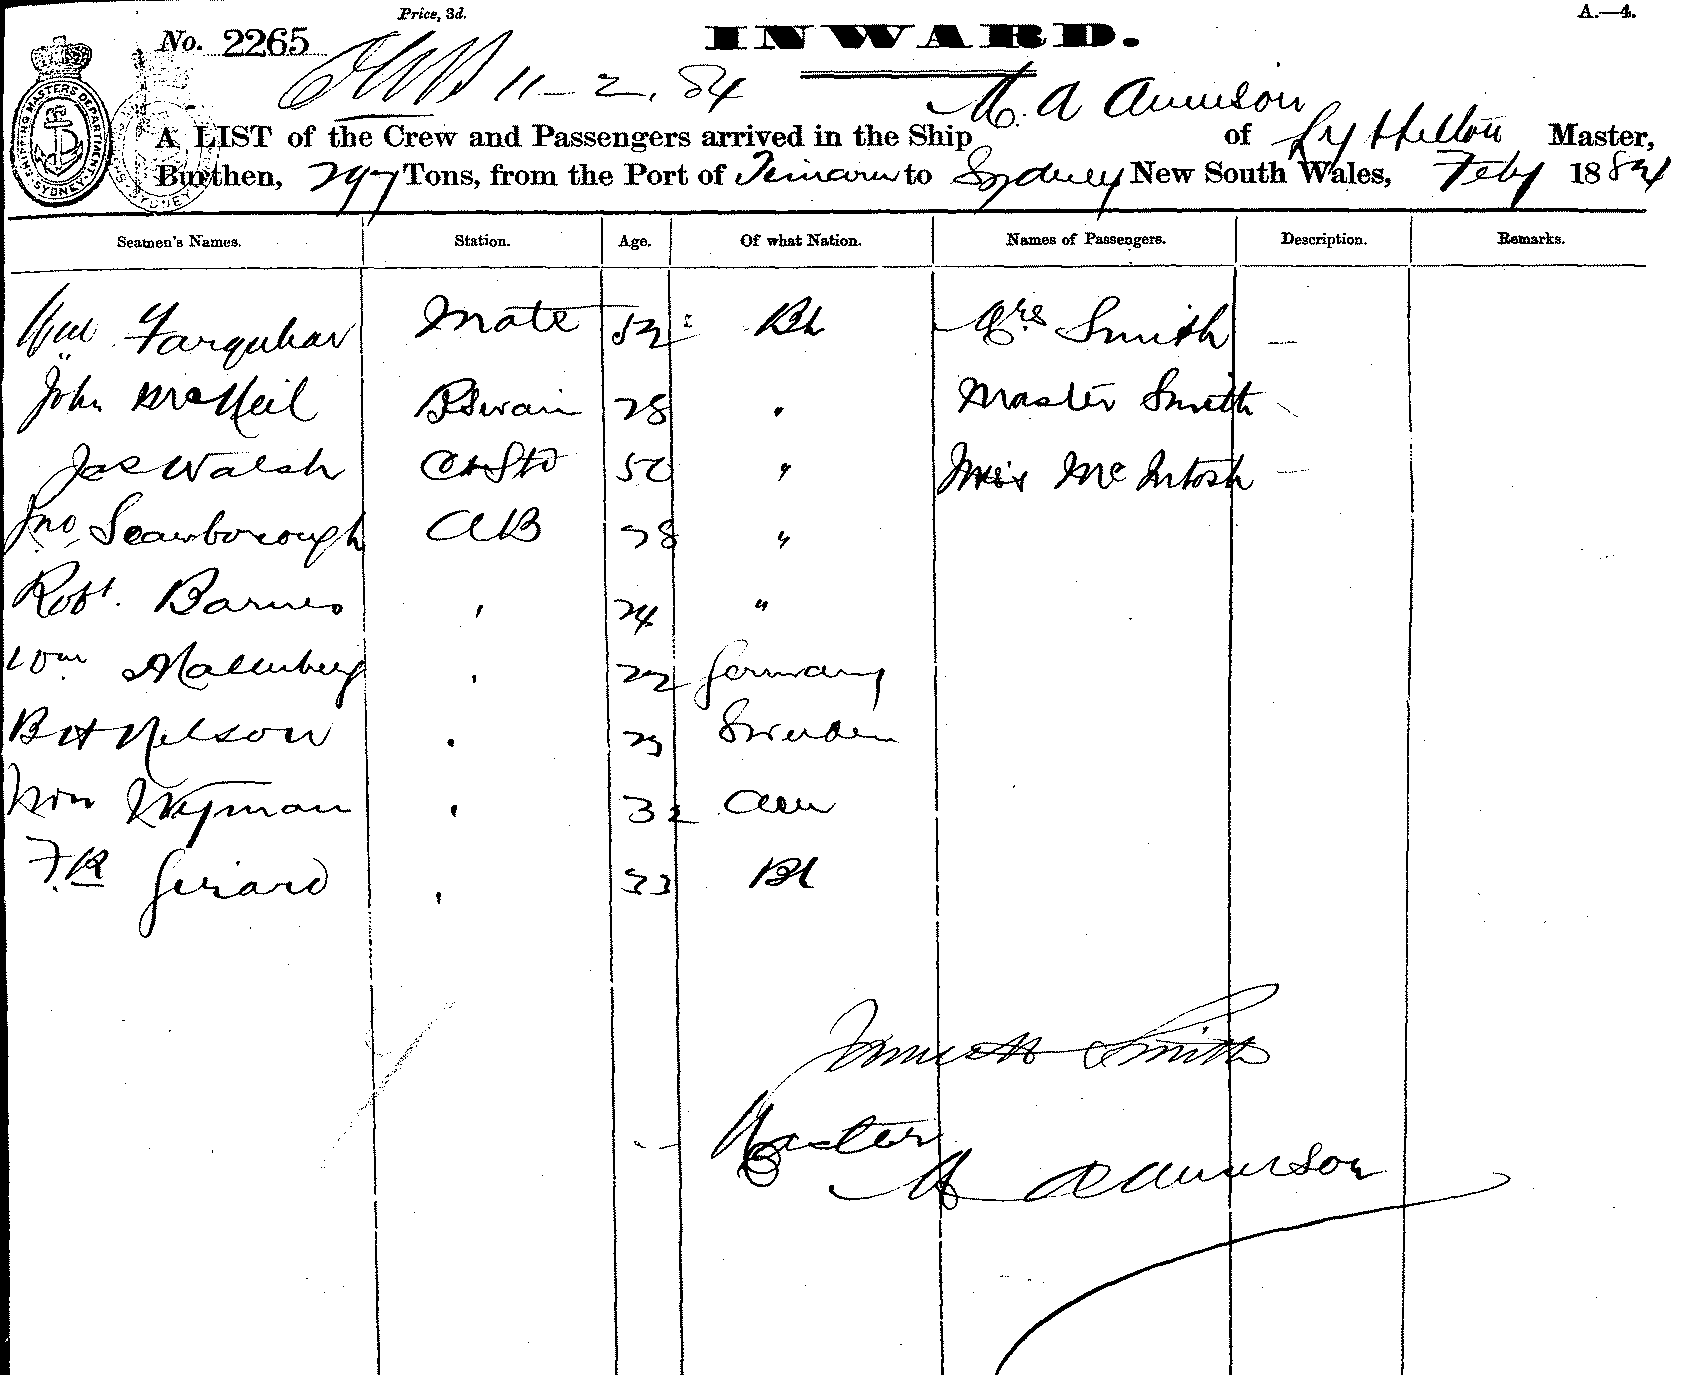 Price, 3d.
A.—4.
No. 2265
INWARD.
11-2.84
M. A Annison
A LIST of the Crew and Passengers arrived in the Ship of Lyttelton Master,
Burthen, 297 Tons, from the Port of Timaru to Sydney New South Wales, Feby 1884
SHIPPING MASTERS DEPARTMENT. SYDNEY
Seamen's Names. Station. Age. Of what Nation. Names of Passengers. Description. Remarks.
Wm Farquhar Mate 52 Bh Mrs Smith —
John McNeil BSwain 28 . Master Smith -
Jas Walsh 50 " Miss McIntosh —
Jno. Scarborough AB 28 "
Robt. Barnes ' 24 "
Wm Mallenberg . 22 Germany
B H Nelson . 23 Sweden
Wm Wyman ' 32 Am
F.R Girard ' 33 Bh
James H Smith
Master
M A Annison